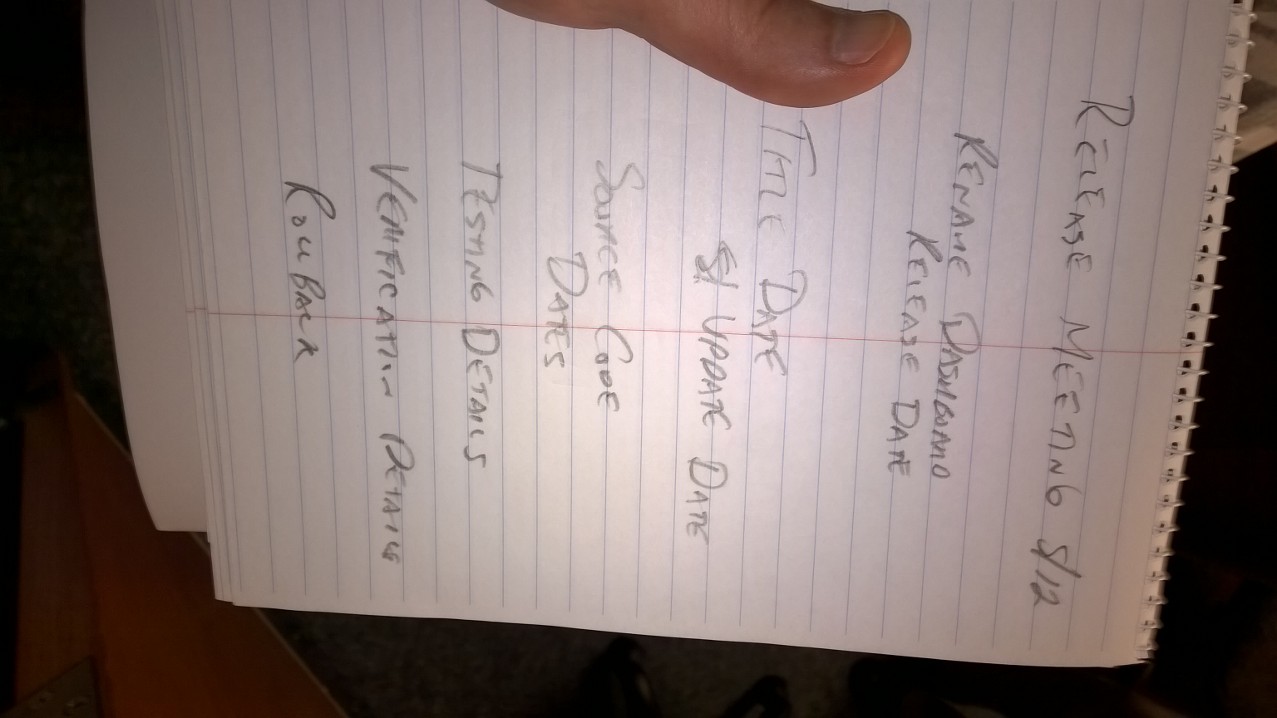 RELEASE MEETING 8/12
RENAME DASHBOARD
RELEASE DATE
TITLE DATE
UPDATE DATE
SOURCE CODE
DATES
TESTING DETAILS
VERIFICATION DETAILS
ROLLBACK